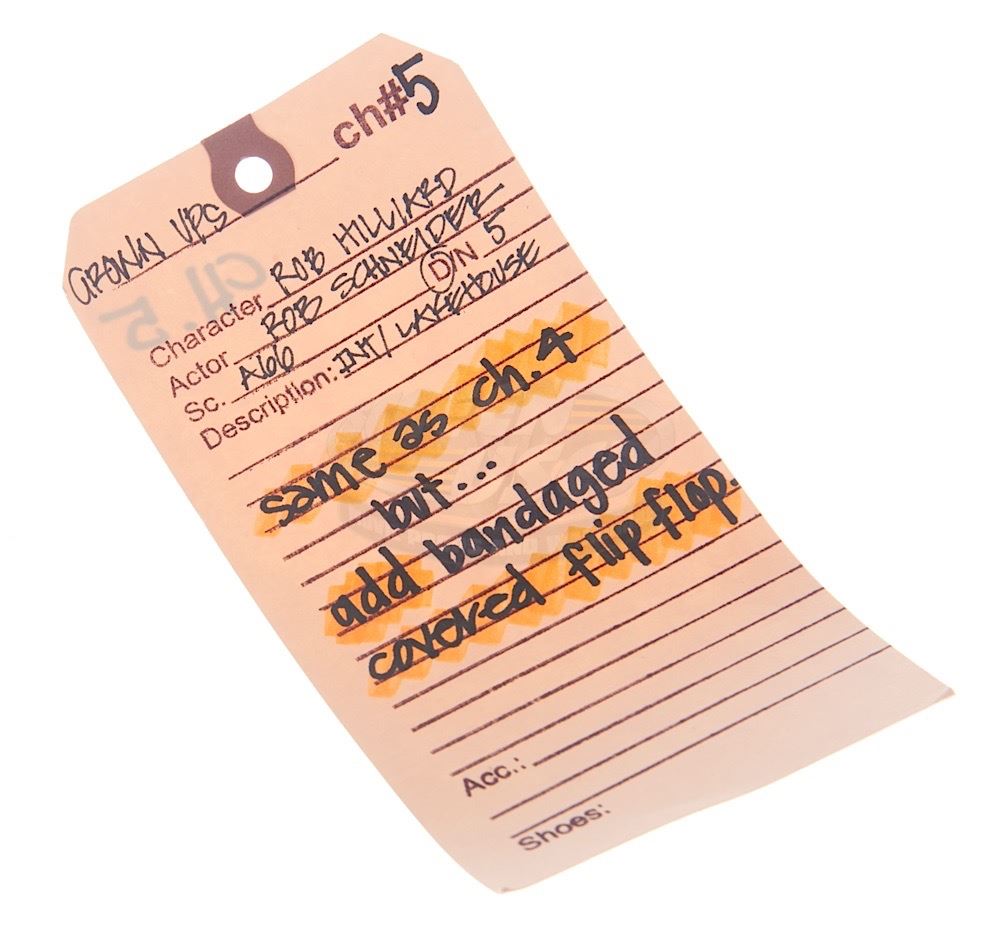 ch#5
GROWN UPS
Character ROB HILLIARD
Actor ROB SCHNEIDER
Sc. A66 DN 5
Description: INT/ LAKEHOUSE
same as ch. 4
but...
add bandaged
covered flip flop.
Acc.:
Shoes: